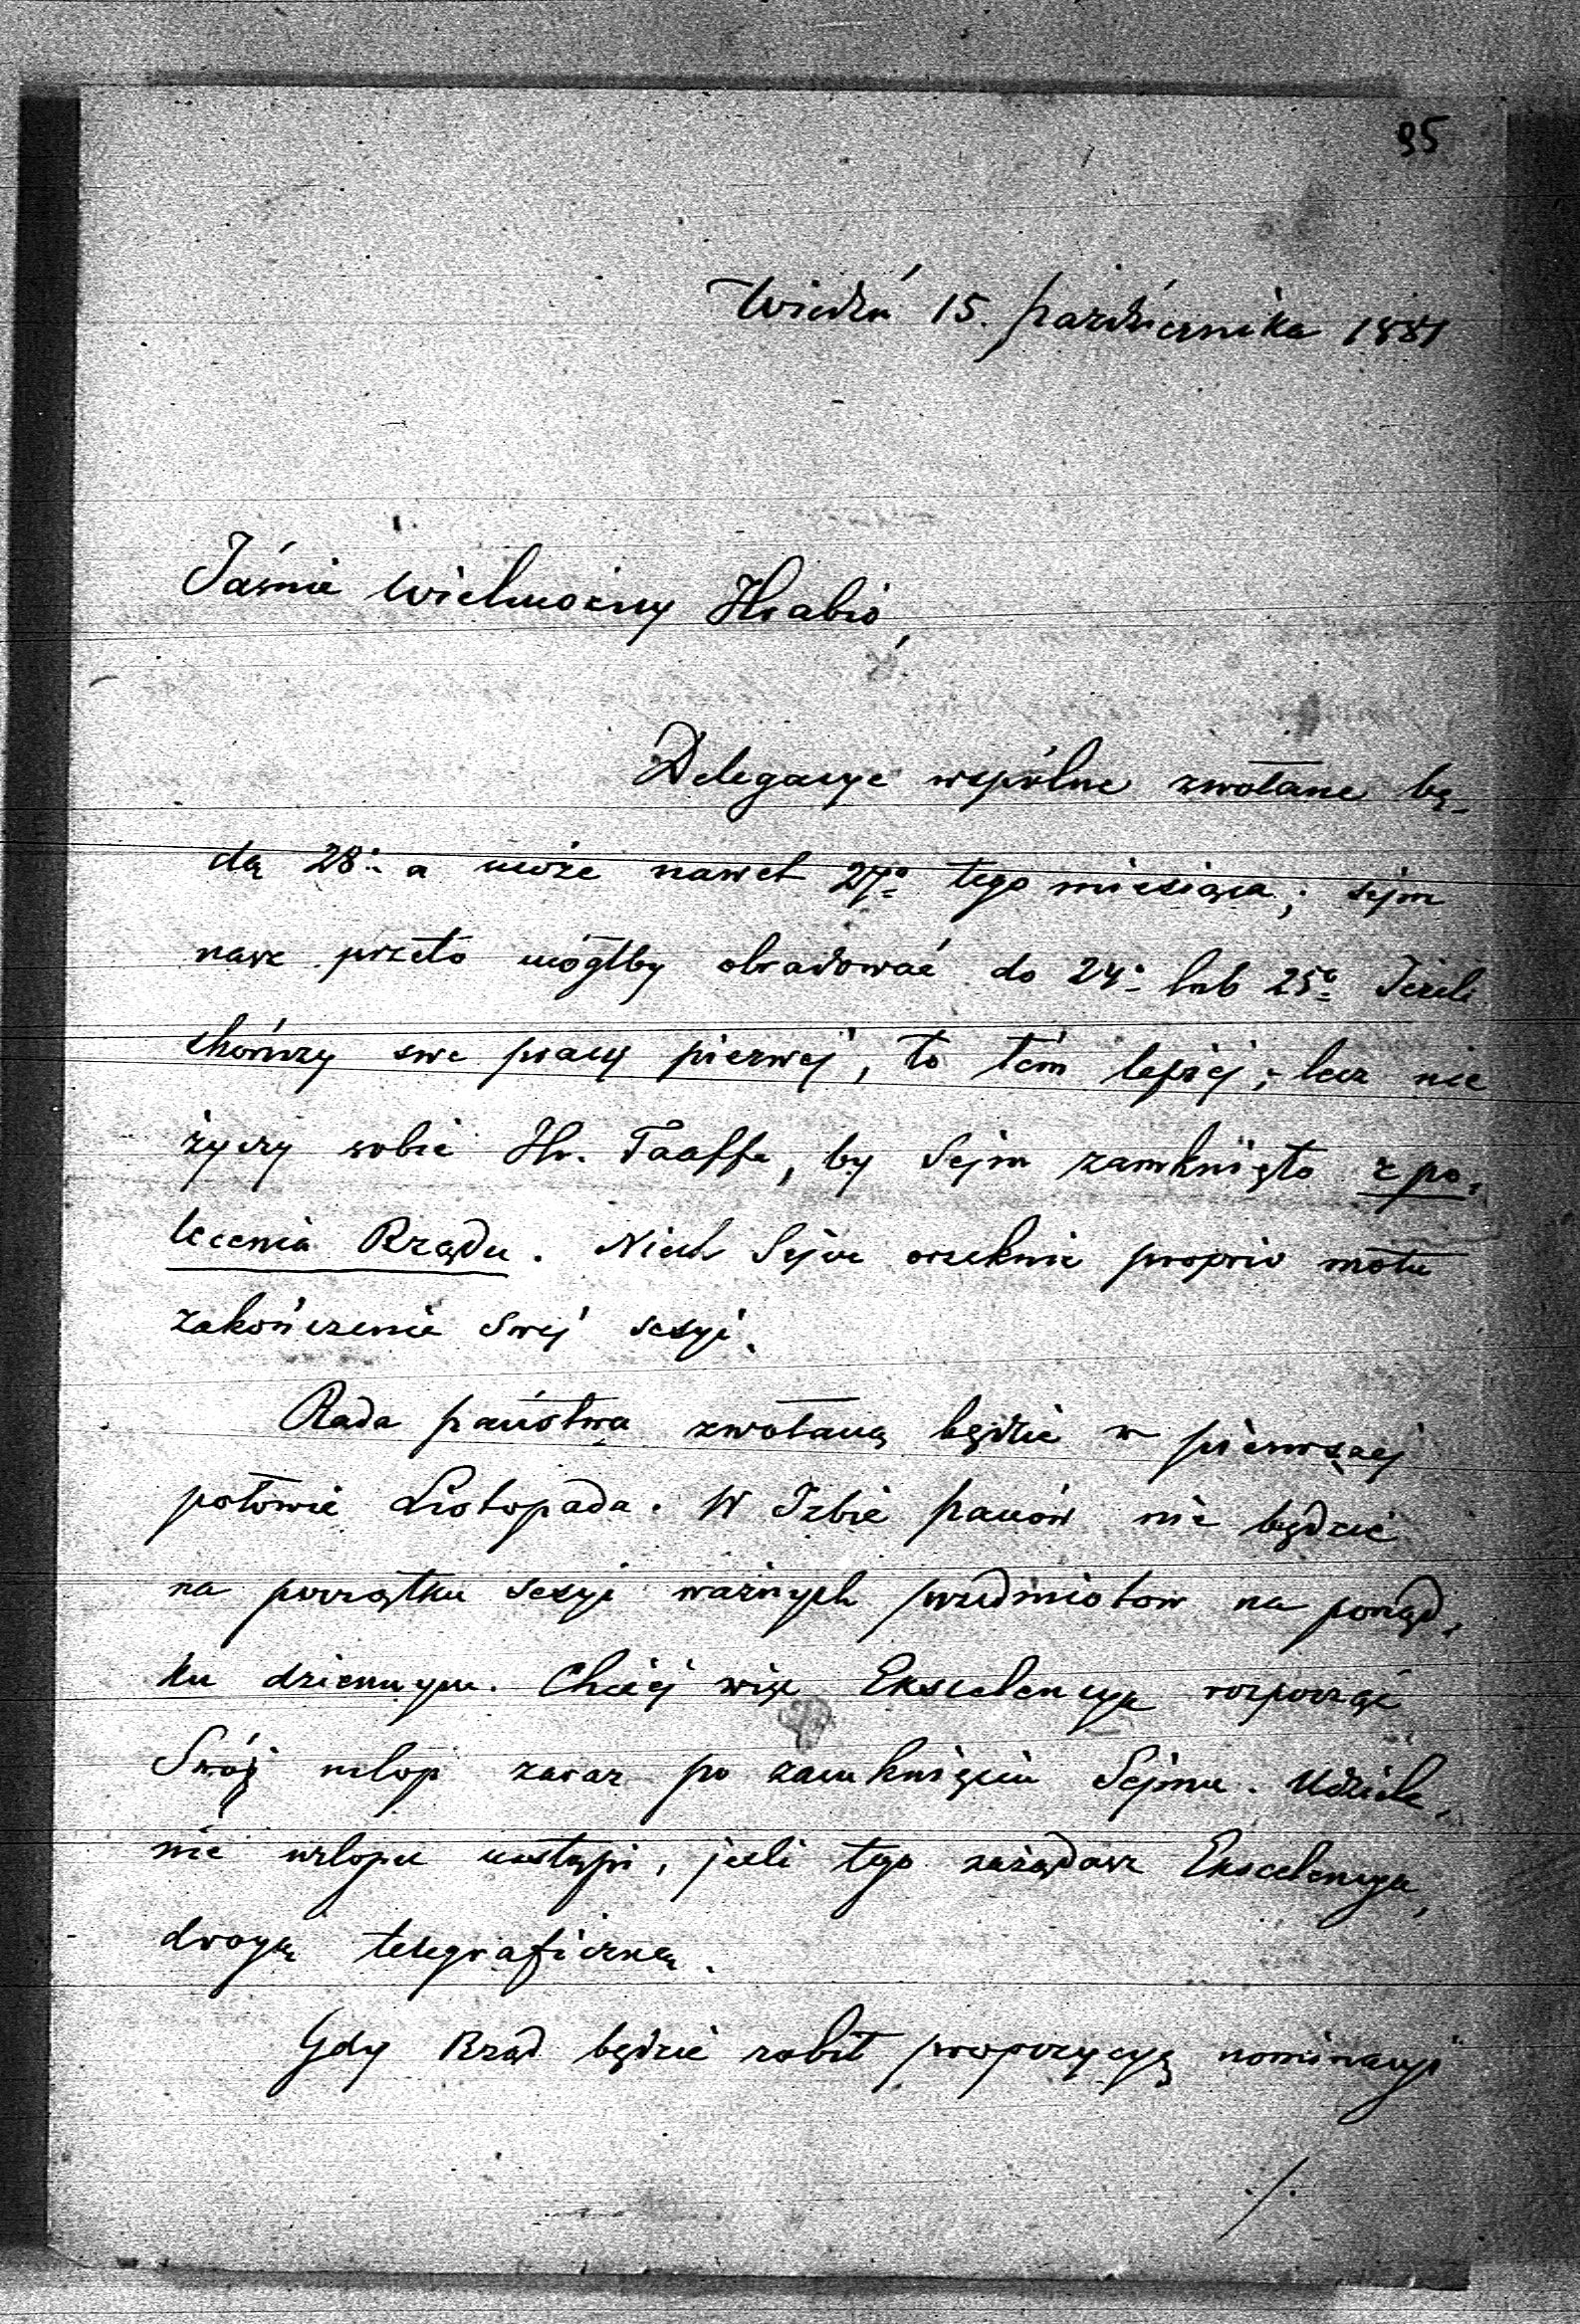 95
Wiedeń 15. października 1881
Jaśnie Wielmożny Hrabio,
Delegacye wspólne zwołane bę-
dą 28º a może nawet 27º tego miesiąca; sejm
nasz przeto mógłby obradować do 24º lub 25º Jeżeli
skończy swe pracy pierwej, to tém lepiej; lecz nie
życzy sobie Hr. Taaffe, by Sejm zamknięto z po-
lecenia Rządu. Niech Sejm orzeknie proprio motu
zakończenie swej sesyi.
Rada państwa zwołaną będzie w pierwszej
połowie Listopada. W Izbie panów nie będzie
na początku sesyi ważnych przedmiotów na porząd-
ku dziennym. Chciej więc Ekscelencyo rozpocząć
Swój urlop zaraz po zamknięciu Sejmu. Udziele-
nie urlopu nastąpi, jeśli tego zażądasz Ekscelencyo,
drogą telegraficzną.
Gdy Rząd będzie robił propozycyę nominacyi
./.